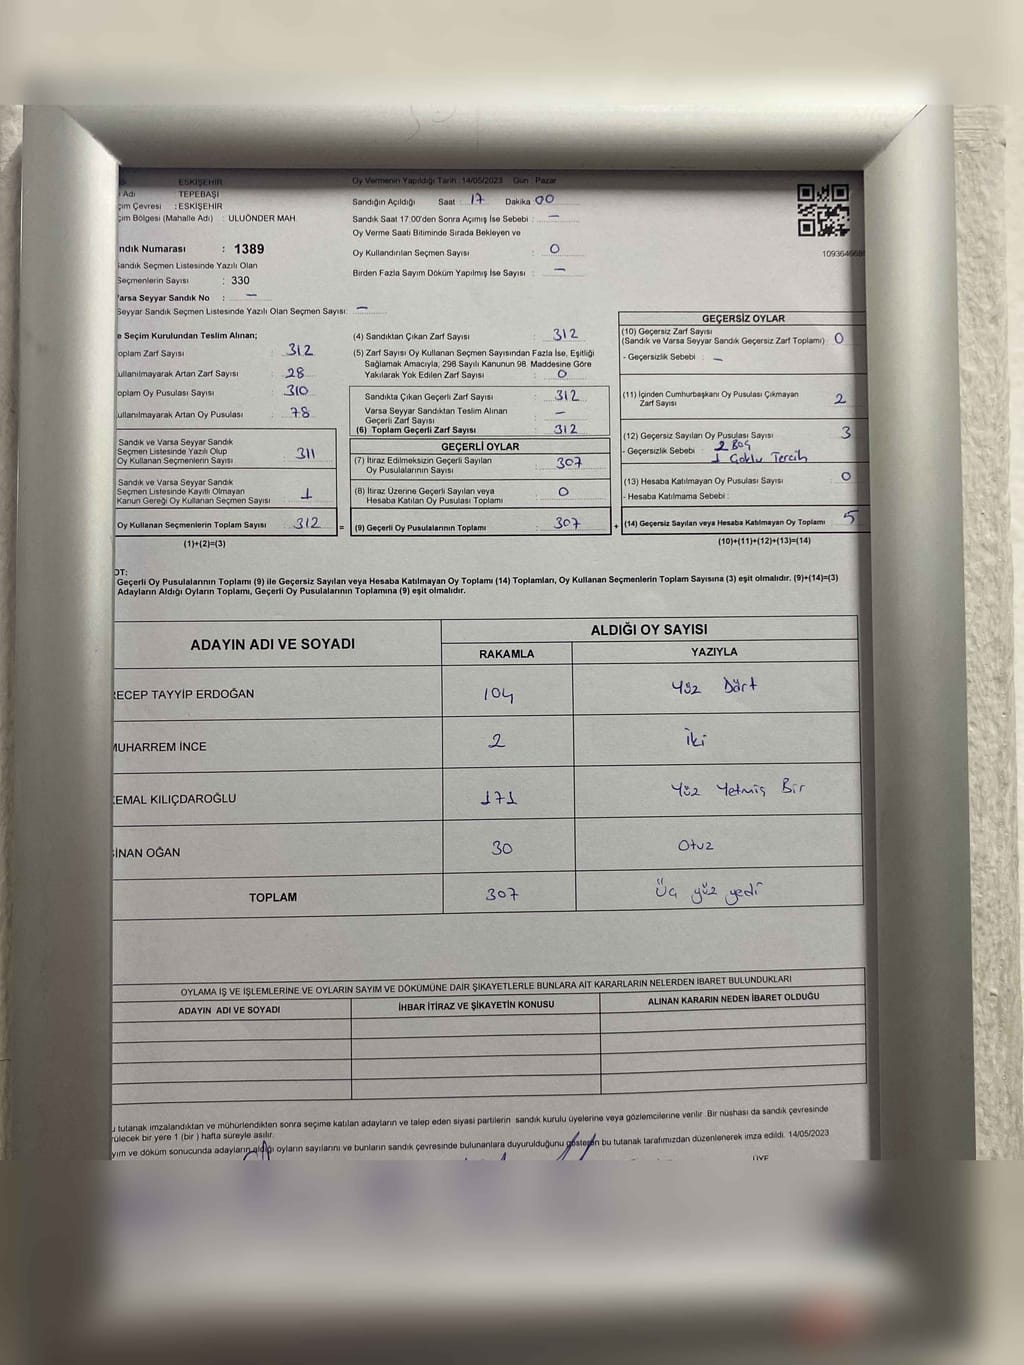 ESKİŞEHİR
Adı : TEPEBAŞI
çim Çevresi : ESKİŞEHİR
çim Bölgesi (Mahalle Adı) : ULUÖNDER MAH.
ndık Numarası : 1389
Sandık Seçmen Listesinde Yazılı Olan
Seçmenlerin Sayısı : 330
Varsa Seyyar Sandık No : —
Seyyar Sandık Seçmen Listesinde Yazılı Olan Seçmen Sayısı: —
Oy Vermenin Yapıldığı Tarih :14/05/2023 Gün : Pazar
Sandığın Açıldığı Saat : 17 Dakika 00
Sandık Saat 17.00'den Sonra Açımış İse Sebebi : —
Oy Verme Saati Bitiminde Sırada Bekleyen ve
Oy Kullandırılan Seçmen Sayısı : 0
Birden Fazla Sayım Döküm Yapılmış İse Sayısı : —
e Seçim Kurulundan Teslim Alınan;
oplam Zarf Sayısı 312
ullanılmayarak Artan Zarf Sayısı 28
oplam Oy Pusulası Sayısı 310
ullanılmayarak Artan Oy Pusulası 78
Sandık ve Varsa Seyyar Sandık
Seçmen Listesinde Yazılı Olup
Oy Kullanan Seçmenlerin Sayısı 311
Sandık ve Varsa Seyyar Sandık
Seçmen Listesinde Kayıtlı Olmayan
Kanun Gereği Oy Kullanan Seçmen Sayısı 1
Oy Kullanan Seçmenlerin Toplam Sayısı 312 =
(1)+(2)=(3)
(4) Sandıktan Çıkan Zarf Sayısı : 312
(5) Zarf Sayısı Oy Kullanan Seçmen Sayısından Fazla İse, Eşitliği
Sağlamak Amacıyla, 298 Sayılı Kanunun 98. Maddesine Göre
Yakılarak Yok Edilen Zarf Sayısı : 0
Sandıkta Çıkan Geçerli Zarf Sayısı : 312
Varsa Seyyar Sandıktan Teslim Alınan
Geçerli Zarf Sayısı : —
(6) Toplam Geçerli Zarf Sayısı : 312
GEÇERLİ OYLAR
(7) İtiraz Edilmeksizin Geçerli Sayılan
Oy Pusulalarının Sayısı : 307
(8) İtiraz Üzerine Geçerli Sayılan veya
Hesaba Katılan Oy Pusulası Toplamı : 0
(9) Geçerli Oy Pusulalarının Toplamı : 307 +
GEÇERSİZ OYLAR
(10) Geçersiz Zarf Sayısı
(Sandık ve Varsa Seyyar Sandık Geçersiz Zarf Toplamı) : 0
- Geçersizlik Sebebi : —
(11) İçinden Cumhurbaşkanı Oy Pusulası Çıkmayan
Zarf Sayısı 2
(12) Geçersiz Sayılan Oy Pusulası Sayısı 3
- Geçersizlik Sebebi : 2 Boş
1 Çoklu Tercih
(13) Hesaba Katılmayan Oy Pusulası Sayısı 0
- Hesaba Katılmama Sebebi :
(14) Geçersiz Sayılan veya Hesaba Katılmayan Oy Toplamı 5
(10)+(11)+(12)+(13)=(14)
OT:
Geçerli Oy Pusulalarının Toplamı (9) ile Geçersiz Sayılan veya Hesaba Katılmayan Oy Toplamı (14) Toplamları, Oy Kullanan Seçmenlerin Toplam Sayısına (3) eşit olmalıdır. (9)+(14)=(3)
Adayların Aldığı Oyların Toplamı, Geçerli Oy Pusulalarının Toplamına (9) eşit olmalıdır.
ADAYIN ADI VE SOYADI ALDIĞI OY SAYISI
RAKAMLA YAZIYLA
RECEP TAYYİP ERDOĞAN 104 Yüz Dört
MUHARREM İNCE 2 İki
KEMAL KILIÇDAROĞLU 171 Yüz Yetmiş Bir
SİNAN OĞAN 30 Otuz
TOPLAM 307 Üç yüz yedi
OYLAMA İŞ VE İŞLEMLERİNE VE OYLARIN SAYIM VE DÖKÜMÜNE DAİR ŞİKAYETLERLE BUNLARA AİT KARARLARIN NELERDEN İBARET BULUNDUKLARI
ADAYIN ADI VE SOYADI İHBAR İTİRAZ VE ŞİKAYETİN KONUSU ALINAN KARARIN NEDEN İBARET OLDUĞU
u tutanak imzalandıktan ve mühürlendikten sonra seçime katılan adayların ve talep eden siyasi partilerin sandık kurulu üyelerine veya gözlemcilerine verilir. Bir nüshası da sandık çevresinde
rülecek bir yere 1 (bir ) hafta süreyle asılır.
yım ve döküm sonucunda adayların aldığı oyların sayılarını ve bunların sandık çevresinde bulunanlara duyurulduğunu gösteren bu tutanak tarafımızdan düzenlenerek imza edildi. 14/05/2023
ÜYE